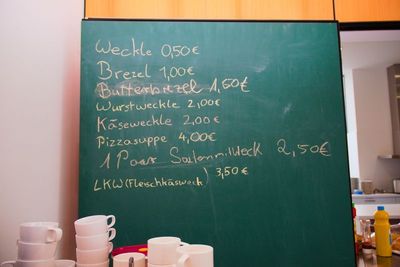 Weckle 0,50€
Brezel 1,00€
Butterbrezel 1,50€
Wurstweckle 2,00€
Käseweckle 2,00€
Pizzasuppe 4,00€
1 Paar Saitenmitweck 2,50€
LKW (Fleischkäsweck) 3,50€